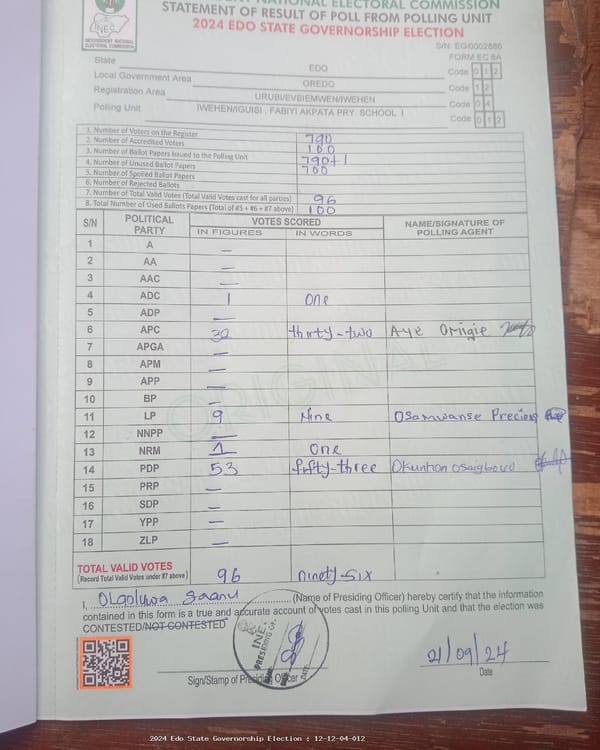 INDEPENDENT NATIONAL ELECTORAL COMMISSION
STATEMENT OF RESULT OF POLL FROM POLLING UNIT
2024 EDO STATE GOVERNORSHIP ELECTION
INEC
INDEPENDENT NATIONAL ELECTORAL COMMISSION
S/N: EG/0002686
FORM EC 8A
State EDO Code 0 1 2
Local Government Area OREDO Code 1 2
Registration Area URUBI/EVBIEMWEN/IWEHEN Code 0 4
Polling Unit IWEHEN/IGUISI, FABIYI AKPATA PRY. SCHOOL I Code 0 1 2
1. Number of Voters on the Register 790
2. Number of Accredited Voters 100
3. Number of Ballot Papers Issued to the Polling Unit 790+1
4. Number of Unused Ballot Papers 700
5. Number of Spoiled Ballot Papers
6. Number of Rejected Ballots
7. Number of Total Valid Votes (Total Valid Votes cast for all parties) 96
8. Total Number of Used Ballots Papers (Total of #5 + #6 + #7 above) 100
S/N POLITICAL PARTY VOTES SCORED NAME/SIGNATURE OF POLLING AGENT
IN FIGURES IN WORDS
1 A —
2 AA —
3 AAC —
4 ADC 1 one
5 ADP —
6 APC 32 thirty-two Aye Origie
7 APGA —
8 APM —
9 APP —
10 BP —
11 LP 9 Nine Osamwanse Precious
12 NNPP —
13 NRM 1 one
14 PDP 53 fifty-three
15 PRP —
16 SDP —
17 YPP —
18 ZLP —
ORIGINAL
TOTAL VALID VOTES 96 ninety-six
(Record Total Valid Votes under #7 above)
I, (Name of Presiding Officer) hereby certify that the information
contained in this form is a true and accurate account of votes cast in this polling Unit and that the election was
CONTESTED/NOT CONTESTED
21/09/24
Sign/Stamp of Presiding Officer Date
2024 Edo State Governorship Election : 12-12-04-012